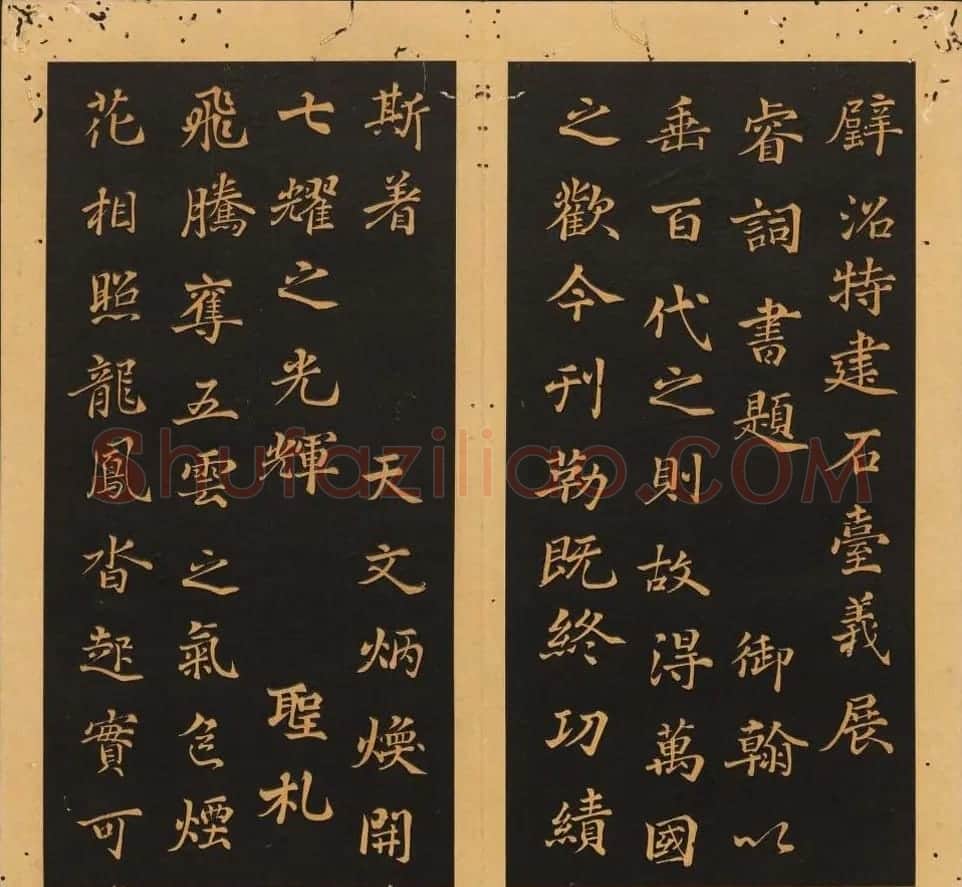 璧沼特建石臺義展
睿詞書題御翰以
垂百代之則故得萬國
之歡今刊勒既終功績
斯着天文炳煥開
七耀之光輝聖札
飛騰奪五雲之氣色煙
花相照龍鳳沓起實可
Shufaziliao.COM